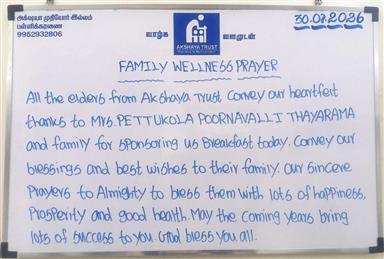 அக்ஷயா முதியோர் இல்லம்
பள்ளிக்கரணை
9952932806
வாழ்க வளமுடன்
AKSHAYA TRUST
30.07.2026
FAMILY WELLNESS PRAYER
All the elders from Akshaya Trust Convey our heartfelt
thanks to Mrs. PETTUKOLA POORNAVALLI THAYARAMA
and family for sponsoring us Breakfast today. Convey our
blessings and best wishes to their family. our sincere
Prayers to Almighty to bless them with lots of happiness,
Prosperity and good health. May the coming years bring
lots of success to you. God bless you all.